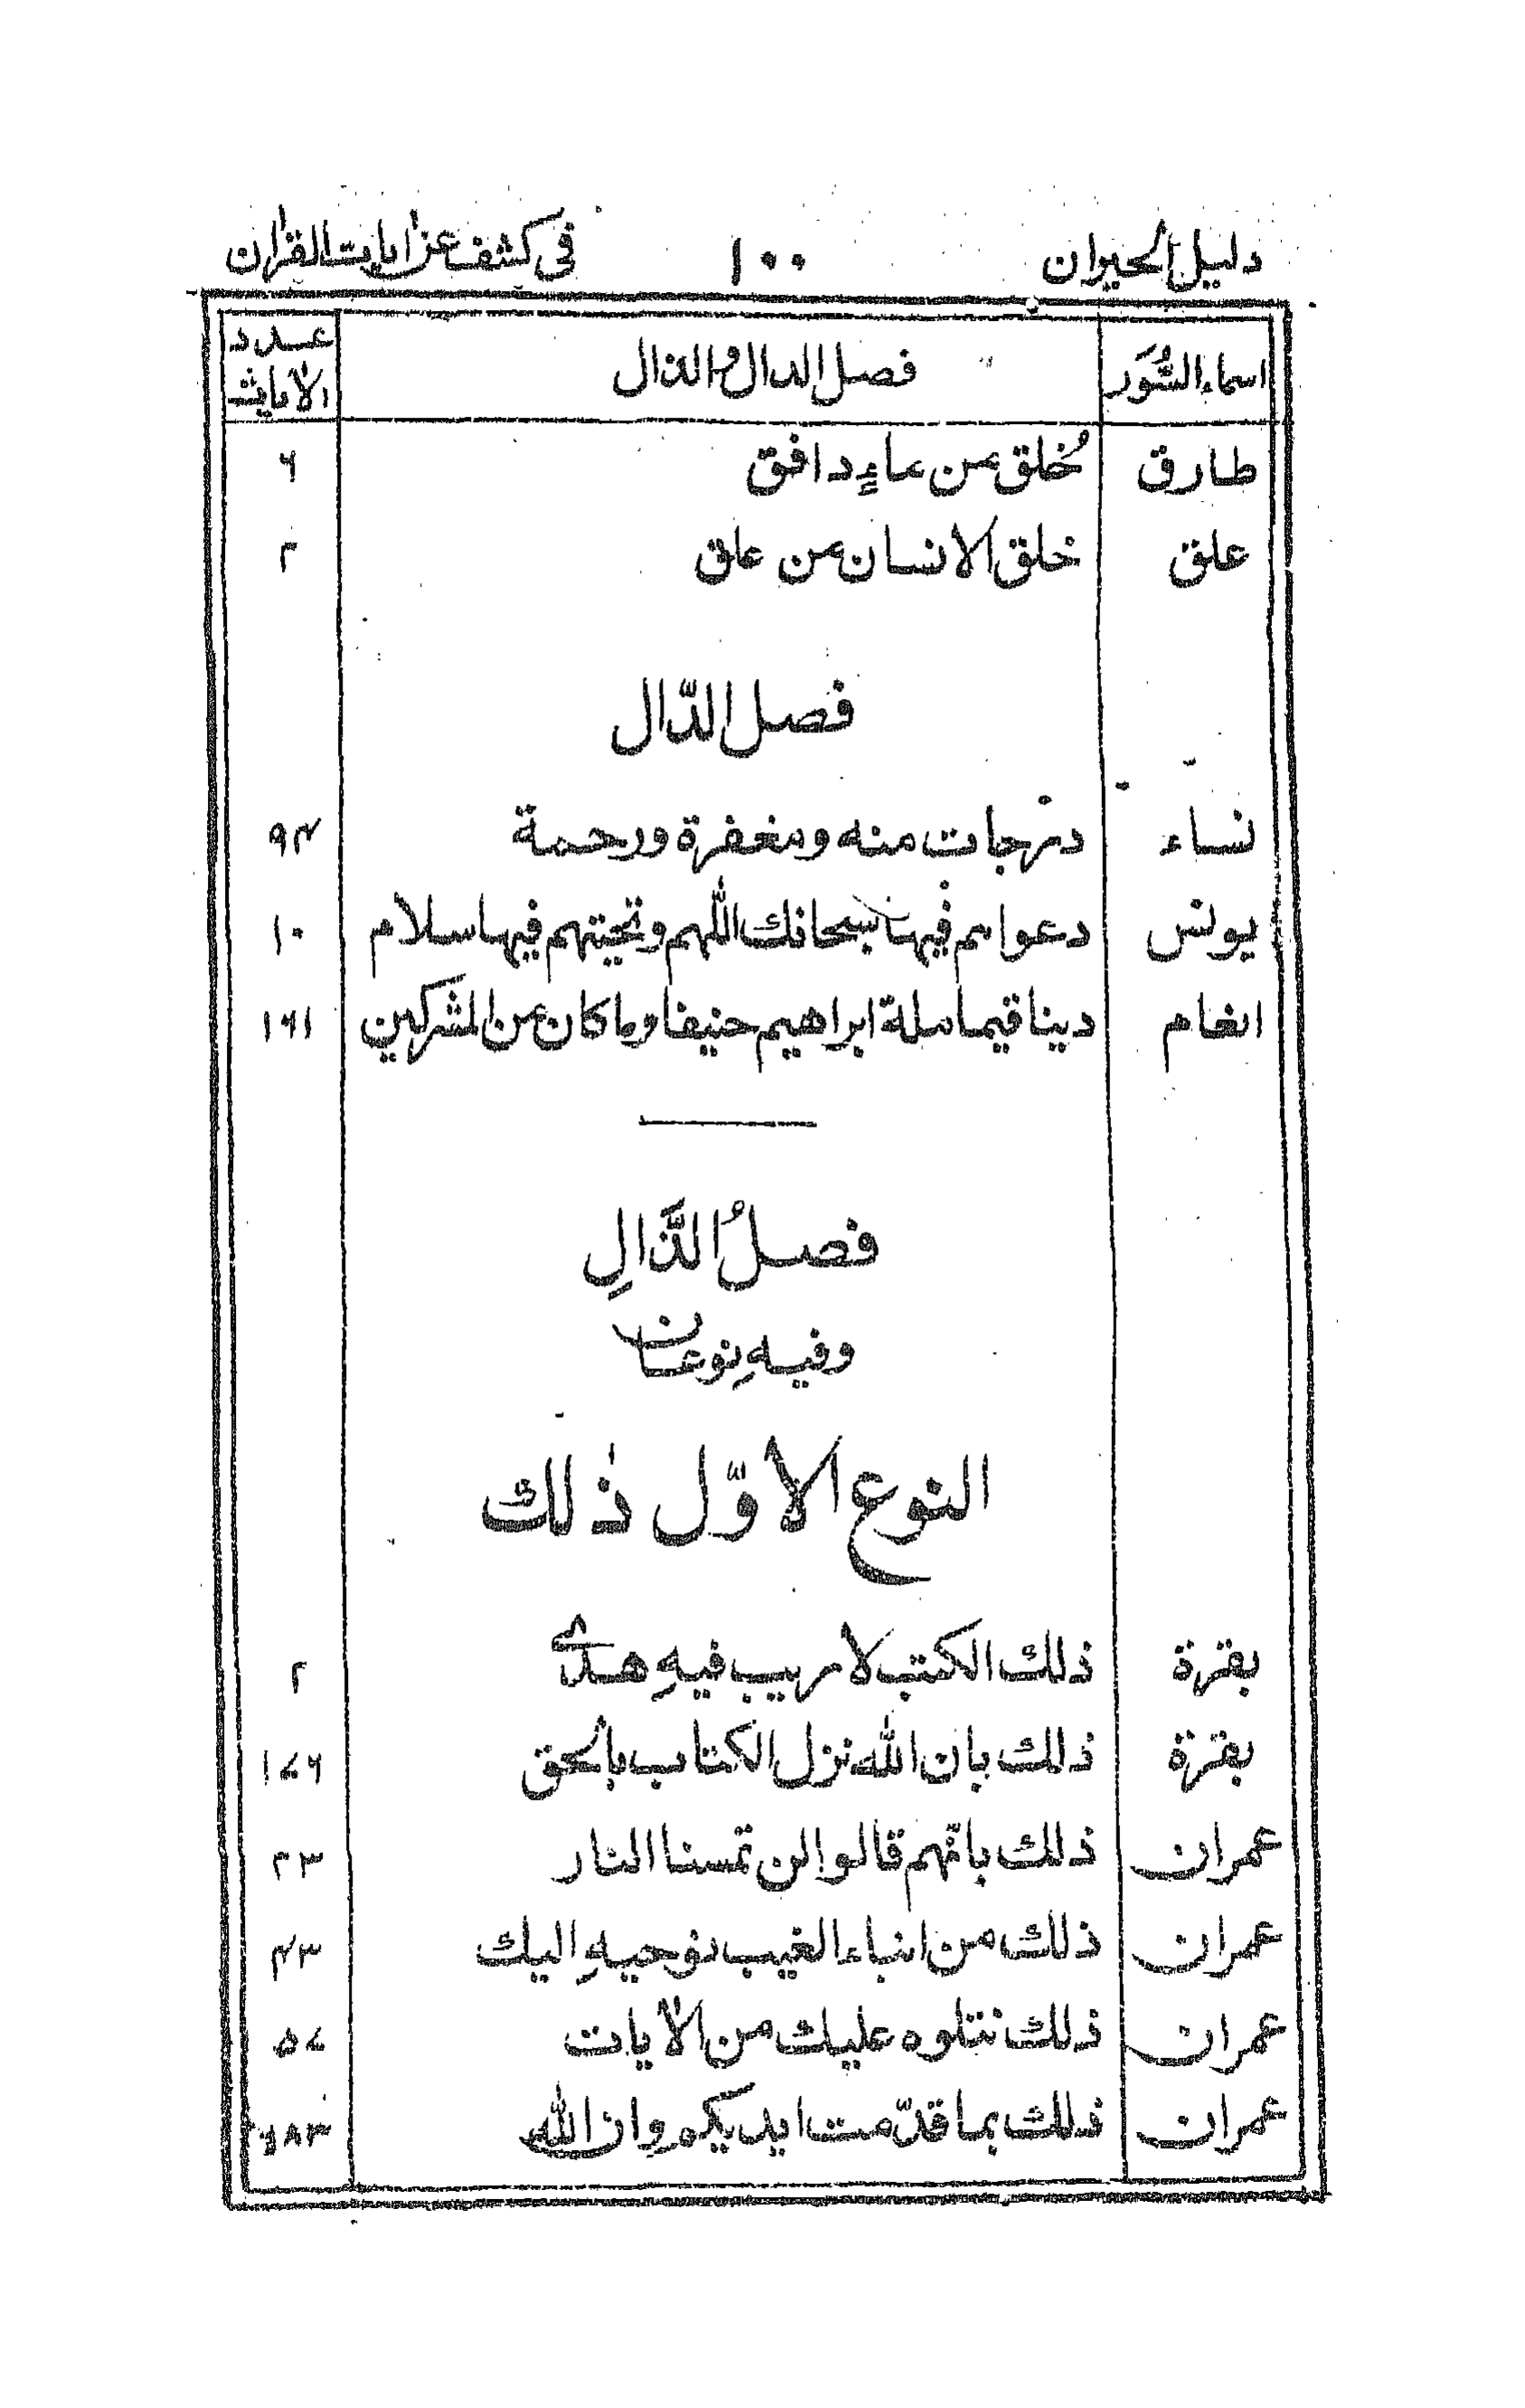 دليل الحيران ١٠٠ في كشف عن ايات القران
اسماء السُّوَر فصل الدال والذال عدد الايات
طارق خُلق من ماءٍ دافق ٦
علق خلق الانسان من علق ٢
فصل الدّال
نساء درجات منه ومغفرة ورحمة ٩٤
يونس دعواهم فيها سبحانك اللهم وتحيتهم فيها سلام ١٠
انعام دينا قيما ملة ابراهيم حنيفا وما كان من المشركين ١٦١
فصلُ الذَّالِ
وفيهِ نوعان
النوع الاوّل ذٰلك
بقرة ذلك الكتب لا ريب فيهِ هدًى ٢
بقرة ذلك بان الله نزل الكتاب بالحق ١٧٦
عمران ذلك بانّهم قالوا لن تمسنا النار ٢٣
عمران ذلك من انباء الغيب نوحيهِ اليك ٤٣
عمران ذلك نتلوه عليك من الايات ٥٧
عمران ذلك بما قدّمت ايديكم وان الله